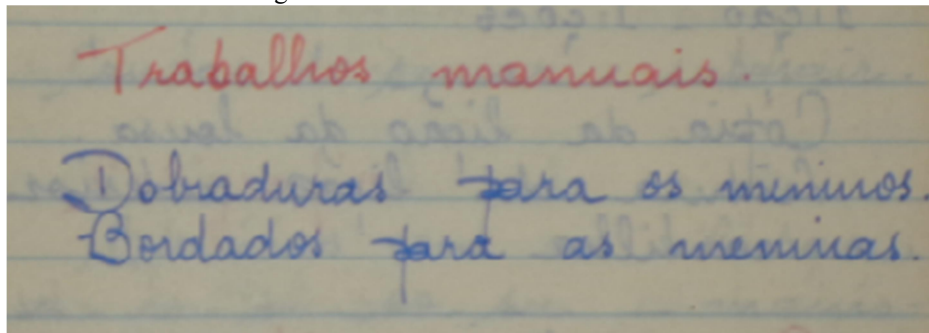 Trabalhos manuais.
Dobraduras para os meninos.
Bordados para as meninas.